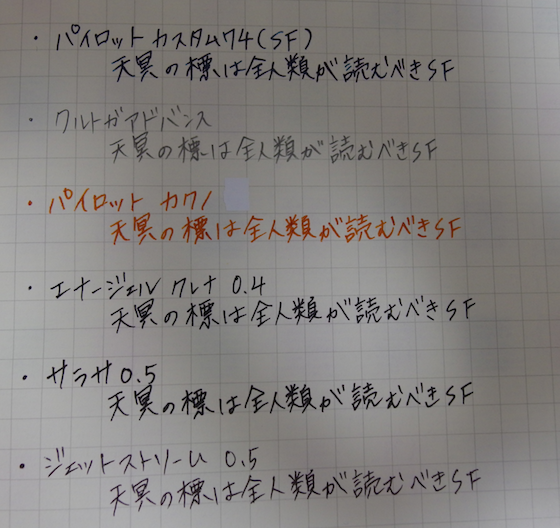 ・パイロット カスタム74(SF)
天冥の標は全人類が読むべきSF
・クルトガアドバンス
天冥の標は全人類が読むべきSF
・パイロット カクノ
天冥の標は全人類が読むべきSF
・エナージェル クレナ 0.4
天冥の標は全人類が読むべきSF
・サラサ0.5
天冥の標は全人類が読むべきSF
・ジェットストリーム 0.5
天冥の標は全人類が読むべきSF